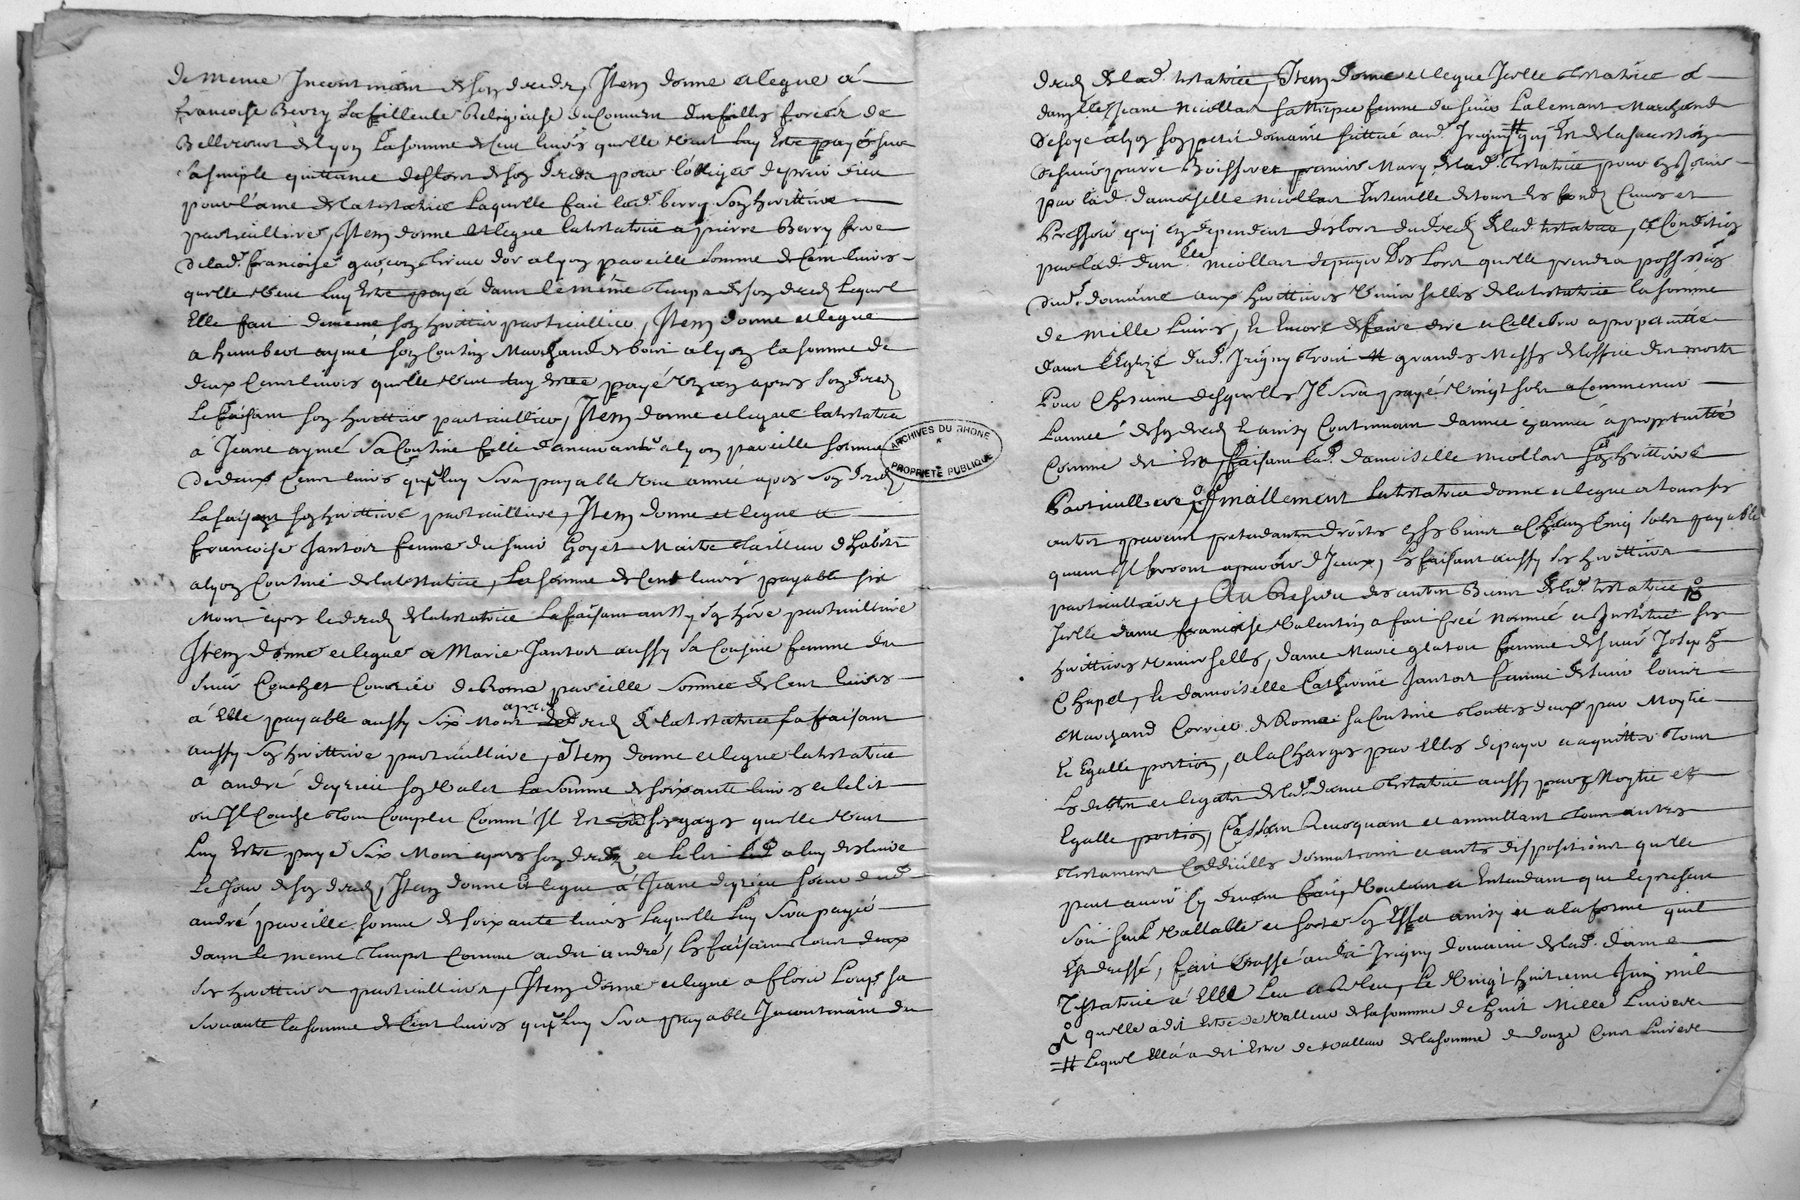 de meme Incontinant de son deces, Item donne et legue à
francoise Berry sa filleule Religieuse du Couvent des filles forcées de
Bellecourt de Lyon la somme de Cent livres quelle veut luy estre payé sur
la simple quittance deslors de son deces pour l'obliger de prier dieu
pour l'ame de la testatrice laquelle fait lad. berry son heritiere
particulliere, Item donne et legue la testatrice a pierre Berry frere
de lad. francoise garçon tireur d'or a lyon pareille somme de Cent livres
quelle veut luy estre payé dans le même temps de son deces lequel
Elle fait de meme son heritier particullier, Item donne et legue
a humbert aymé son Cousin Marchand de bois a lyon la somme de
deux Cent livres quelle veut luy estre payé un an apres son deces
Le faisant son heritier particullier, Item donne et legue la testatrice
à Jeane aymé sa Cousine fille dans a lyon pareille somme
de deux Cent livres qui luy sera payable une année apres son deces
la faisant son heritiere particulliere, Item donne et legue a
francoise Jantot femme du sieur Goyet Maitre tailleur d'habits
a lyon Cousine de la testatrice, la somme de Cent livres payable six
Mois apres le deces de la testatrice la faisant aussy son here particulliere
Item donne et legue a Marie Jantot aussy sa Cousine femme du
sieur Couchet Courrier de Rome pareille somme de Cent livres
à Elle payable aussy six Mois apres le deces de la testatrice la faisant
aussy son heritiere particulliere, Item donne et legue la testatrice
à andré deyrieu son valet la somme de soixante livres et le lit
ou Il Couche tout Complet Comme Il Est ses gages quelle veut
luy Estre payé six Mois apres son deces et le lit a luy deslivré
le Jour de son deces, Item donne et legue à Jeane deyrieu soeur dud.
andré pareille somme de soixante livres laquelle luy sera payée
dans le meme temps Comme aud. andré, les faisant tous deux
ses heritiers particulliers, Item donne et legue a florie Loup sa
servante la somme de Cent livres qui luy sera payable Incontinant du
deces de lad. testatrice, Item donne et legue Icelle testatrice à
damlle Jeane Nicollas sa niepce femme du sieur Lalemant Marchand
de soye a lyon son petit domaine scittué aud. Irigny # qui Est de la succession
de sieur pierre Boissonet premier Mary de lad. testatrice pour En Jouir
par lad. damoiselle Nicollas Ensemble de tous les fonds Cuves et
Pressoir qui En dependent deslors du deces de lad. testatrice, a Condition
par lad. damlle Nicollas de payer Des lors quelle prendra possession
dud. domaine aux heritieres universelles de la testatrice la somme
de Mille Livres, Et Encore de faire dire et Cellebrer a perpetuité
dans l'Eglize dud. Irigny trois grandes Messes de l'office des morts
Pour Chascune desquelles Il sera payé vingt sols a Commencer
l'année de son deces Et ainsy Continuant d'année En année à perpetuitté
Comme dit Est, faisant lad. damoiselle Nicollas son heritiere
Particulliere, Finallement la testatrice donne et legue a tous ses
autres parents pretendants droits En ses biens a Chacun Cinq sols payable
quand Il feront apparoir d'Iceux, les faisant aussy ses heritiers
particulliers, Au Residu des autres Biens de lad. testatrice
Icelle dame francoise Valentin a fait Creé Nommé et Institué ses
heritieres universelles, dame Marie femme de sieur Joseph
Chapel, Et damoiselle Catherine Jantot femme de sieur louis
Marchand Corrier de Rome sa Cousine toutes deux par Moytié
Et Egalle portion, a la Charge par Elles de payer et aquitter tous
les debtes et legats de lad. dame testatrice aussy par Moytié et
Egalle portion, Cassant Revoquant et annullant tous autres
testaments Coddicilles donnations et autres dispositions quelle
peut avoir cy devant fait, voulant et Entendant que le present
soit seul vallable et sorte son Effet ainsy et a la forme quil
Est dressé, fait Et passé aud. Irigny domaine de lad. dame
Testatrice à Elle Leu a Releu, le vingt huitieme Juin mil
quelle a dit Estre de valleur de la somme de huit Mille Livres
# Lequel Elle a dit Estre de valleur de la somme de douze Cent Livres
ARCHIVES DU RHONE
PROPRIETE PUBLIQUE